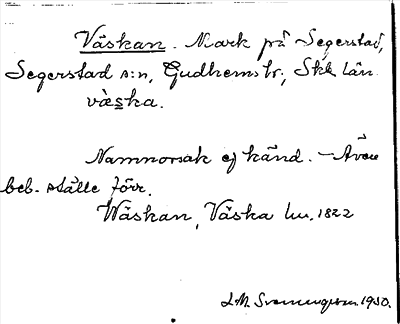 Väskan. Mark på Segerstad,
Segerstad s:n, Gudhems hr, Skbg län.
vä̀ska.
Namnorsak ej känd. - Även
beb. ställe förr.
Wäskan, Väska hu. 1822
1930.